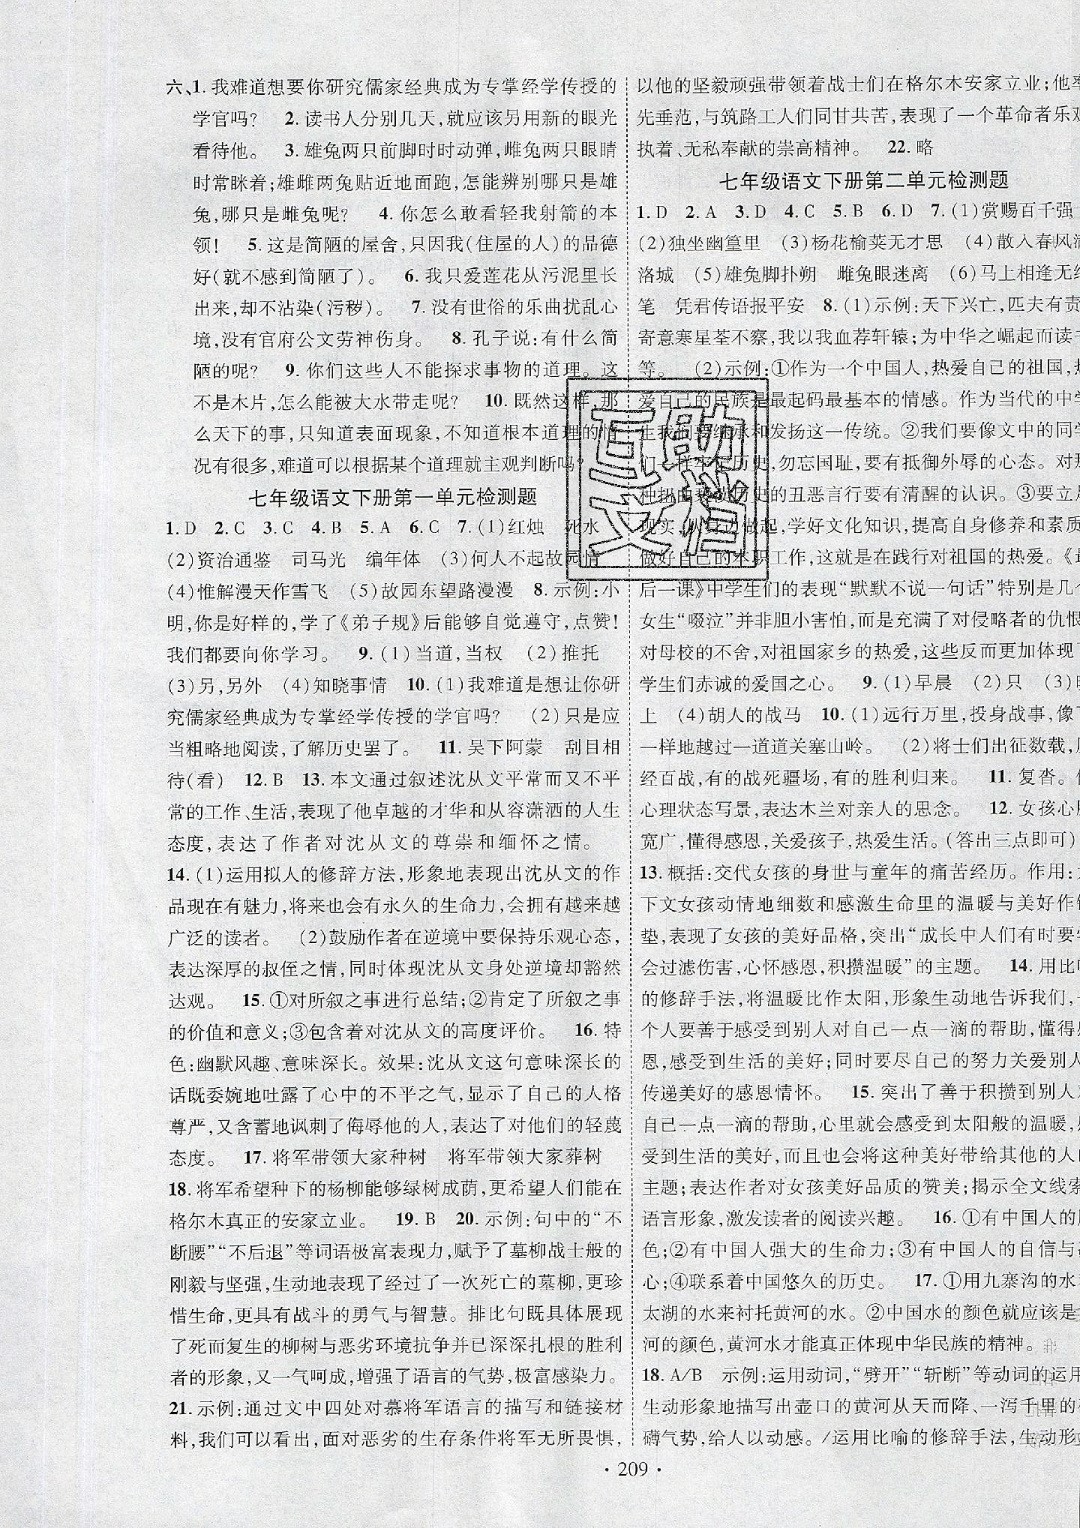 六、1. 我难道想要你研究儒家经典成为专掌经学传授的
学官吗？ 2. 读书人分别几天,就应该另用新的眼光
看待他。 3. 雄兔两只前脚时时动弹,雌兔两只眼睛
时常眯着;雄雌两兔贴近地面跑,怎能辨别哪只是雄
兔,哪只是雌兔呢？ 4. 你怎么敢看轻我射箭的本
领！ 5. 这是简陋的屋舍,只因我(住屋的人)的品德
好(就不感到简陋了)。 6. 我只爱莲花从污泥里长
出来,却不沾染(污秽)。 7. 没有世俗的乐曲扰乱心
境,没有官府公文劳神伤身。 8. 孔子说:有什么简
陋的呢？ 9. 你们这些人不能探求事物的道理。这
不是木片,怎么能被大水带走呢？ 10. 既然这样,那
么天下的事,只知道表面现象,不知道根本道理的情
况有很多,难道可以根据某个道理就主观判断吗？
七年级语文下册第一单元检测题
1. D 2. C 3. C 4. B 5. A 6. C 7. (1)红烛 死水
(2)资治通鉴 司马光 编年体 (3)何人不起故园情
(4)惟解漫天作雪飞 (5)故园东望路漫漫 8. 示例:小
明,你是好样的,学了《弟子规》后能够自觉遵守,点赞！
我们都要向你学习。 9. (1)当道,当权 (2)推托
(3)另,另外 (4)知晓事情 10. (1)我难道是想让你研
究儒家经典成为专掌经学传授的学官吗？ (2)只是应
当粗略地阅读,了解历史罢了。 11. 吴下阿蒙 刮目相
待(看) 12. B 13. 本文通过叙述沈从文平常而又不平
常的工作、生活,表现了他卓越的才华和从容潇洒的人生
态度,表达了作者对沈从文的尊崇和缅怀之情。
14. (1)运用拟人的修辞方法,形象地表现出沈从文的作
品现在有魅力,将来也会有永久的生命力,会拥有越来越
广泛的读者。 (2)鼓励作者在逆境中要保持乐观心态,
表达深厚的叔侄之情,同时体现沈从文身处逆境却豁然
达观。 15. ①对所叙之事进行总结;②肯定了所叙之事
的价值和意义;③包含着对沈从文的高度评价。 16. 特
色:幽默风趣、意味深长。效果:沈从文这句意味深长的
话既委婉地吐露了心中的不平之气,显示了自己的人格
尊严,又含蓄地讽刺了侮辱他的人,表达了对他们的轻蔑
态度。 17. 将军带领大家种树 将军带领大家葬树
18. 将军希望种下的杨柳能够绿树成荫,更希望人们能在
格尔木真正的安家立业。 19. B 20. 示例:句中的“不
断腰”“不后退”等词语极富表现力,赋予了墓柳战士般的
刚毅与坚强,生动地表现了经过了一次死亡的墓柳,更珍
惜生命,更具有战斗的勇气与智慧。排比句则具体表现
了死而复生的柳树与恶劣环境抗争并已深深扎根的胜利
者的形象,又一气呵成,增强了语言的气势,极富感染力。
21. 示例:通过文中四处对慕将军语言的描写和链接材
料,我们可以看出,面对恶劣的生存条件将军无所畏惧,
以他的坚毅顽强带领着战士们在格尔木安家立业;他率
先垂范,与筑路工人们同甘共苦,表现了一个革命者乐观
执着、无私奉献的崇高精神。 22. 略
七年级语文下册第二单元检测题
1. D 2. A 3. D 4. C 5. B 6. D 7. (1)赏赐百千强
(2)独坐幽篁里 (3)杨花榆荚无才思 (4)散入春风满
洛城 (5)雄兔脚扑朔 雌兔眼迷离 (6)马上相逢无纸
笔 凭君传语报平安 8. (1)示例:天下兴亡,匹夫有责
寄意寒星荃不察,我以我血荐轩辕;为中华之崛起而读
等。 (2)示例:①作为一个中国人,热爱自己的祖国,
爱自己的民族是最起码最基本的情感。作为当代的中学
生我们要继承和发扬这一传统。②我们要像文中的同学
们一样牢记历史,勿忘国耻,要有抵御外辱的心态。对那
种扭曲亵渎历史的丑恶言行要有清醒的认识。③要立足
现实,从身边做起,学好文化知识,提高自身修养和素质
做好自己的本职工作,这就是在践行对祖国的热爱。《最
后一课》中学生们的表现“默默不说一句话”特别是几个
女生“啜泣”并非胆小害怕,而是充满了对侵略者的仇恨
对母校的不舍,对祖国家乡的热爱,这些反而更加体现了
学生们赤诚的爱国之心。 9. (1)早晨 (2)只 (3)
上 (4)胡人的战马 10. (1)远行万里,投身战事,像
一样地越过一道道关塞山岭。 (2)将士们出征数载,
经百战,有的战死疆场,有的胜利归来。 11. 复沓。
心理状态写景,表达木兰对亲人的思念。 12. 女孩心胸
宽广,懂得感恩,关爱孩子,热爱生活。(答出三点即可)
13. 概括:交代女孩的身世与童年的痛苦经历。作用:
下文女孩动情地细数和感激生命里的温暖与美好作铺
垫,表现了女孩的美好品格,突出“成长中人们有时要学
会过滤伤害,心怀感恩,积攒温暖”的主题。 14. 用比
的修辞手法,将温暖比作太阳,形象生动地告诉我们,
个人要善于感受到别人对自己一点一滴的帮助,懂得感
恩,感受到生活的美好;同时要尽自己的努力关爱别人
传递美好的感恩情怀。 15. 突出了善于积攒到别人
一点一滴的帮助,心里就会感受到太阳般的温暖,
受到生活的美好,而这样的美好带给其他的人的
主题;表达作者对女孩美好品质的赞美;揭示全文线索
语言形象,激发读者的阅读兴趣。 16. ①有中国人的
色;②有中国人强大的生命力;③有中国人的自信与
心;④联系着中国悠久的历史。 17. ①用九寨沟的水
太湖的水来衬托黄河的水。②中国水的颜色就应该是
河的颜色,黄河水才能真正体现中华民族的精神。
18. A/B 示例:运用动词,“劈开”“斩断”等动词的运用
生动形象地描写出壶口的黄河从天而降、一泻千里的
礴气势,给人以动感。/运用比喻的修辞手法,生动形
互助文档
· 209 ·